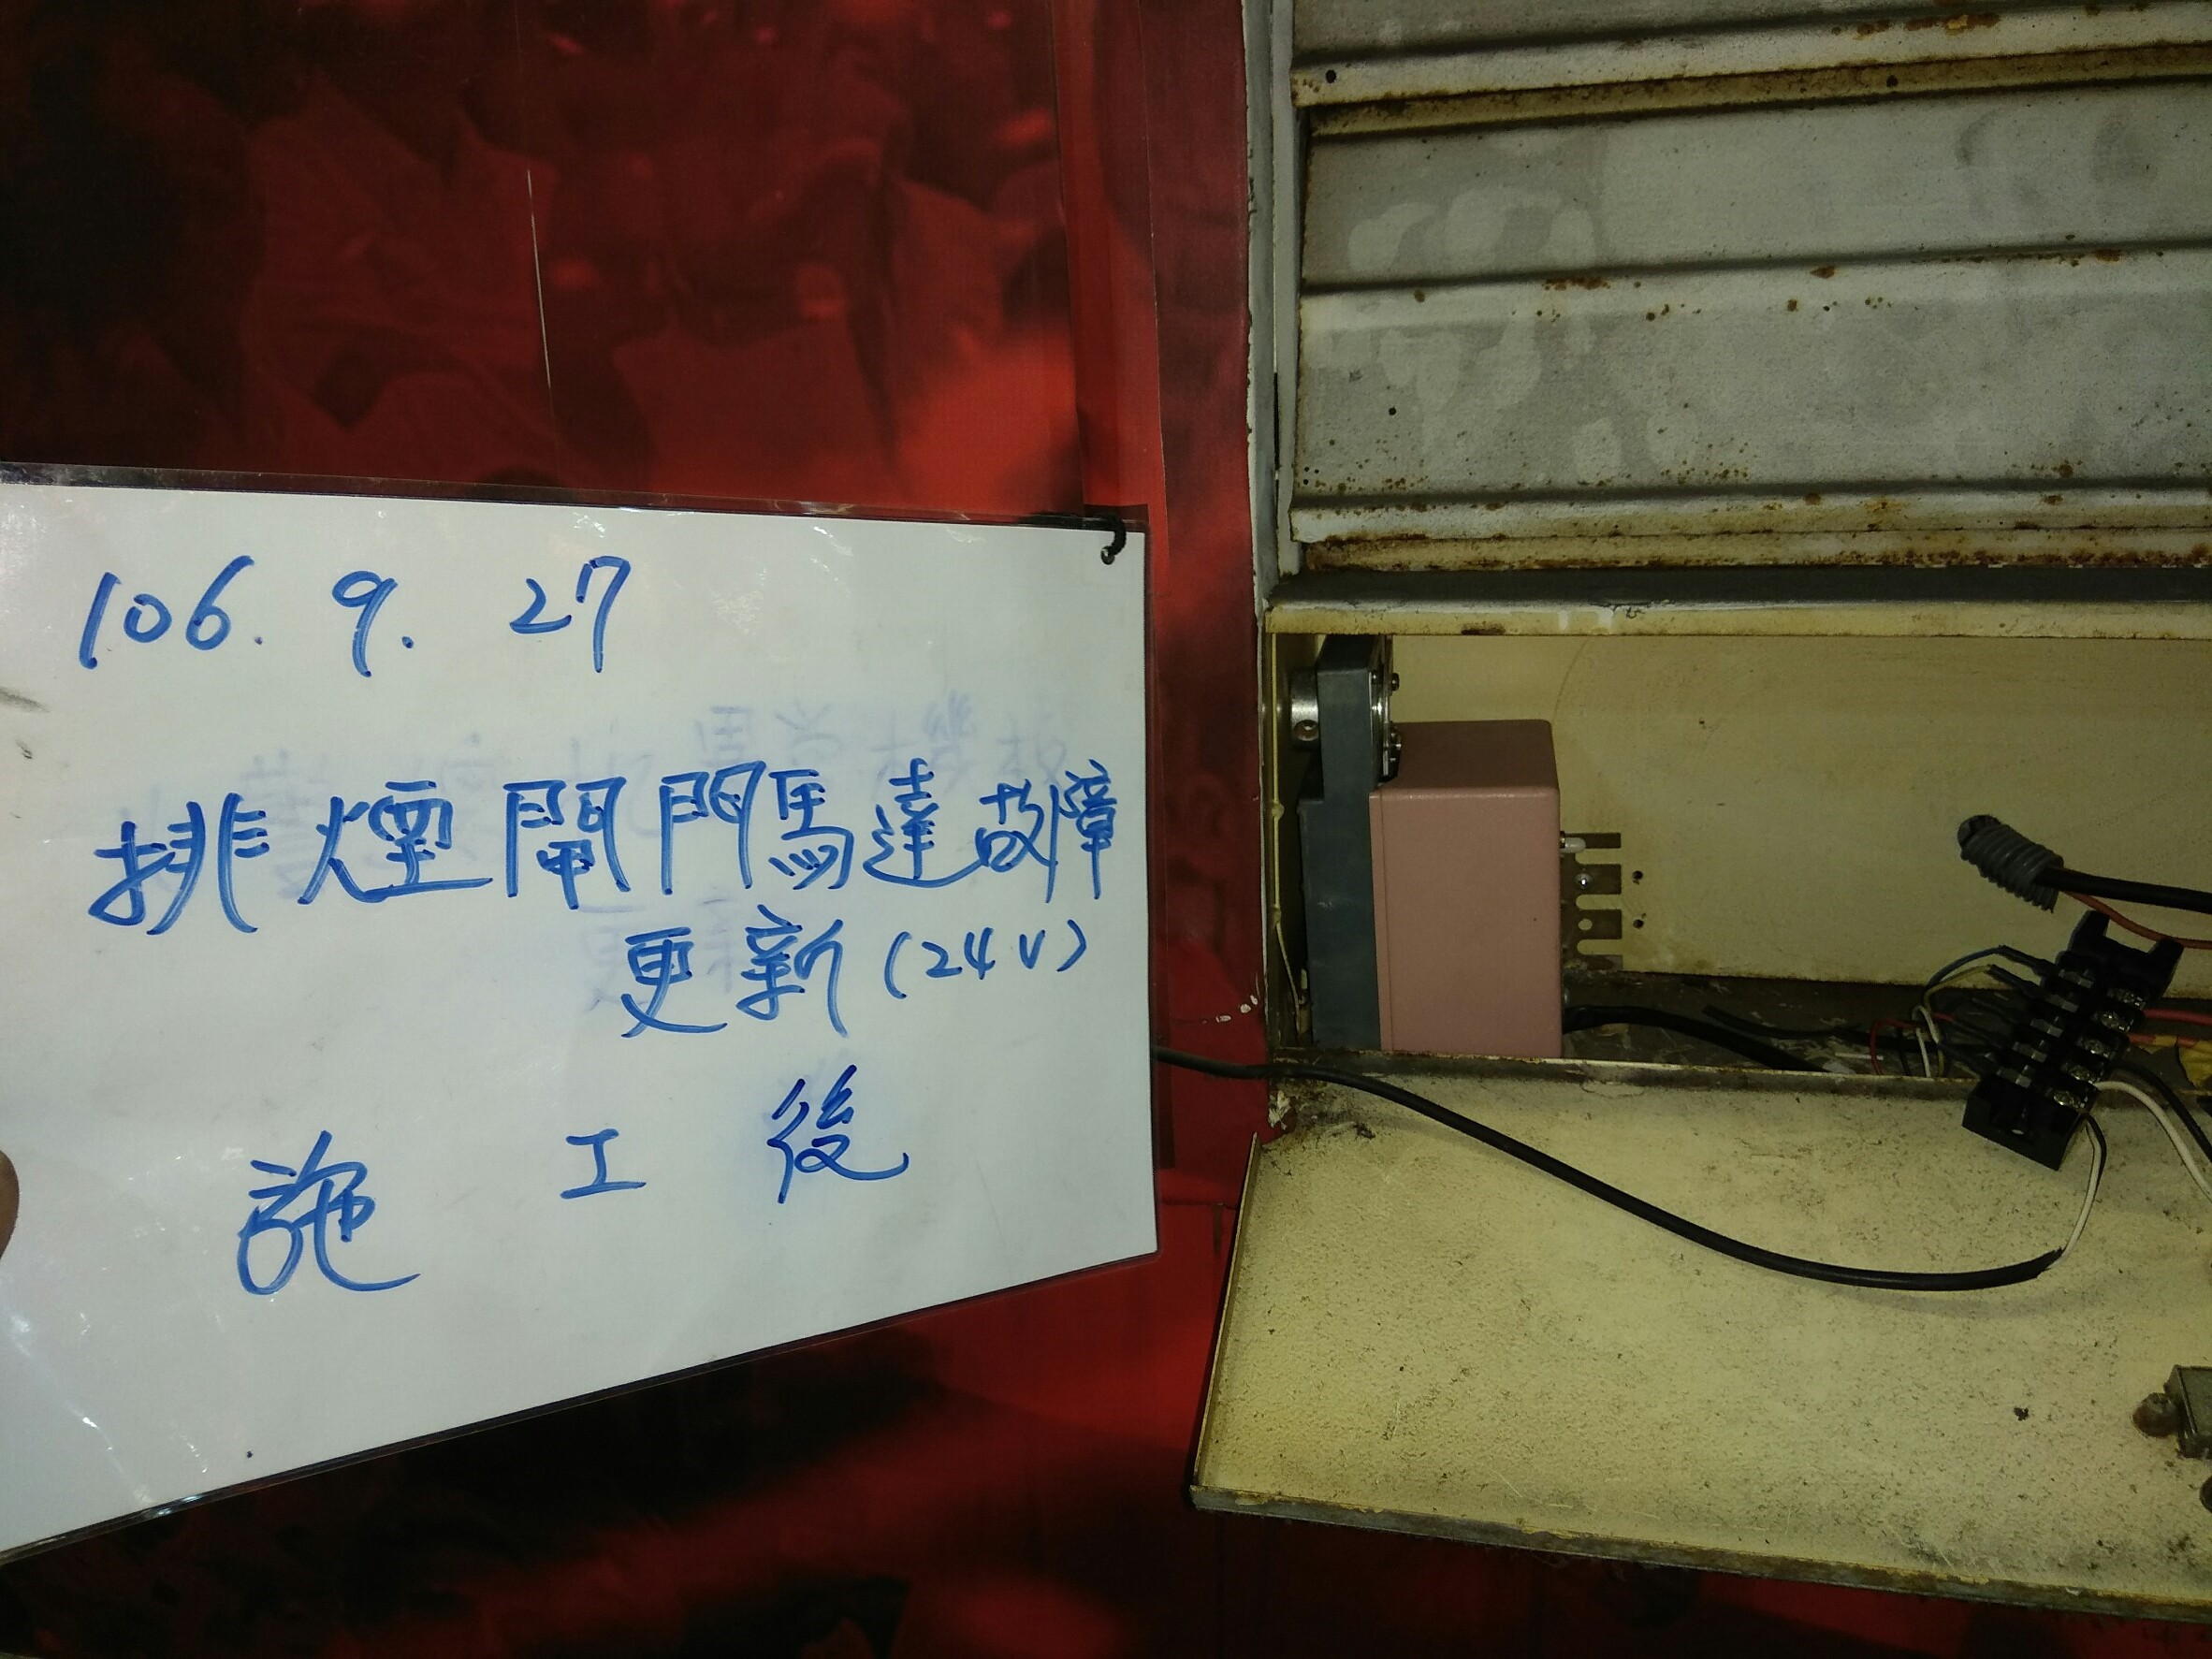 106. 9. 27
排煙閘門馬達故障
更新(24V)
施工後